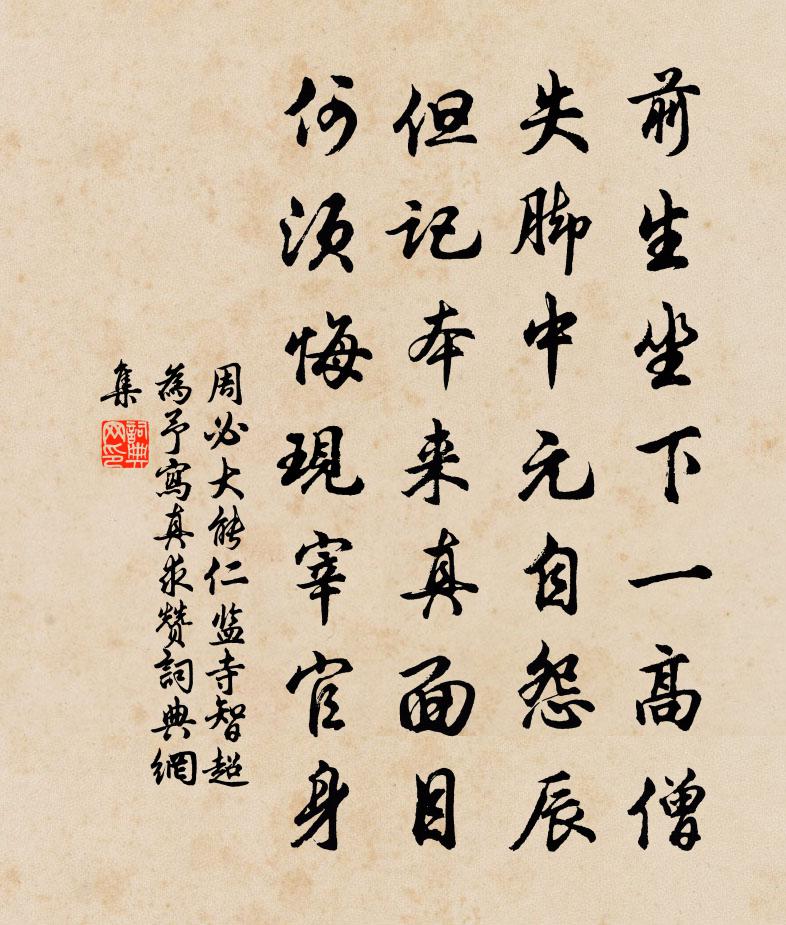 前生坐下一高僧
失脚中元自怨辰
但记本来真面目
何须悔现宰官身
周必大能仁监寺智超
為予寫真求赞詞典網
集
詞典网印